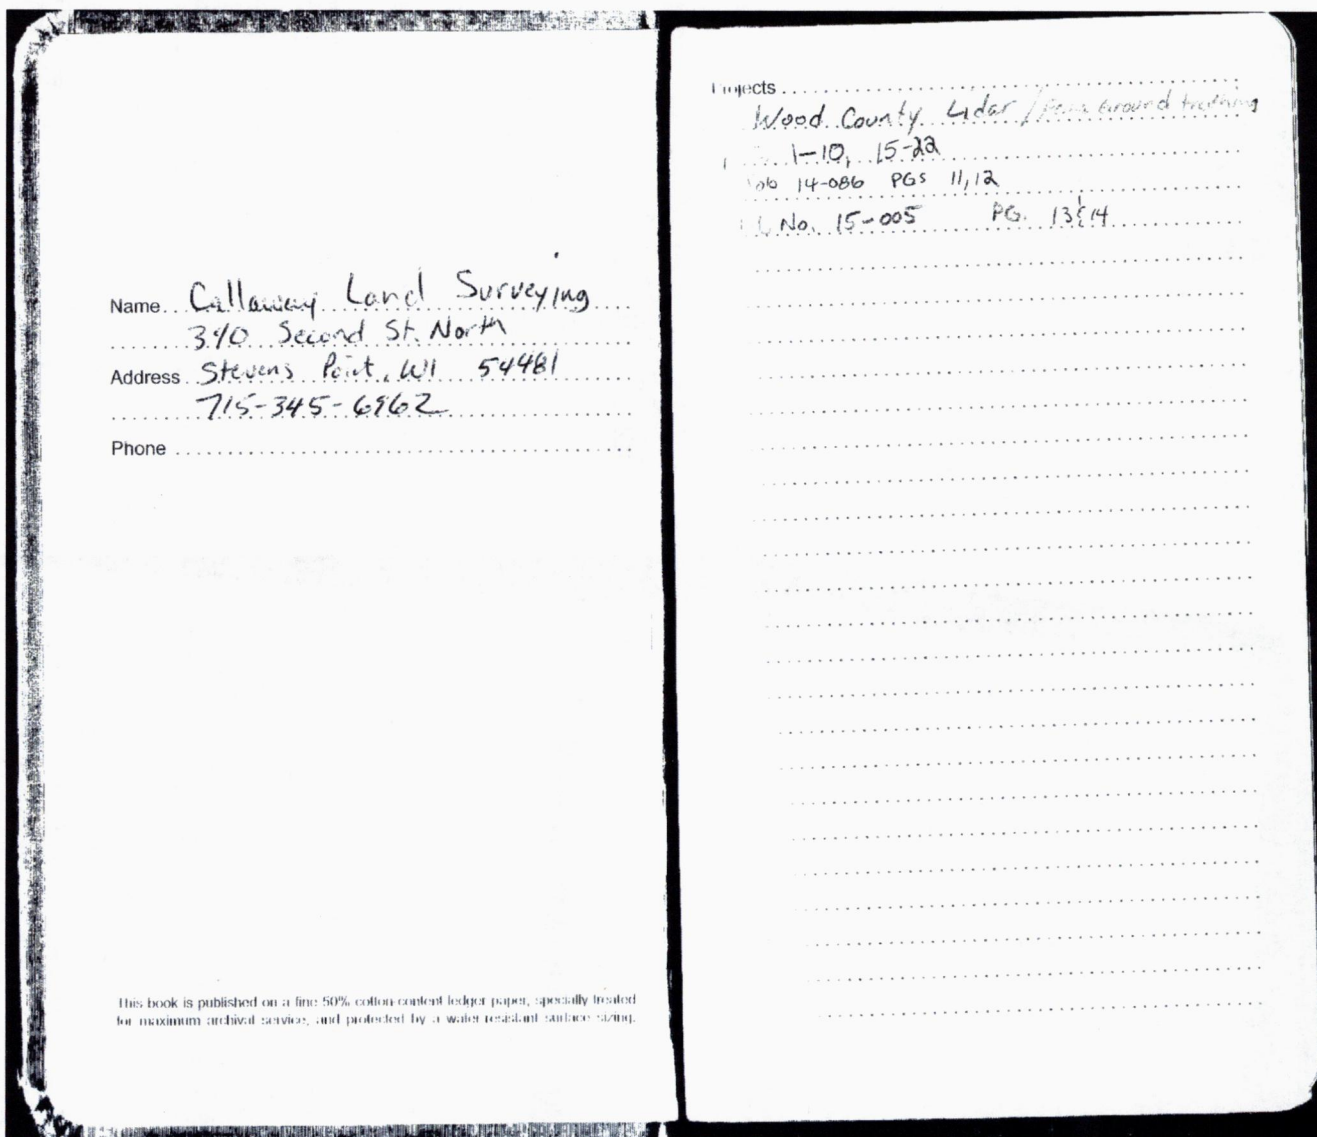 Name Callaway Land Surveying
340 Second St. North
Address Stevens Point, WI 54481
715-345-6962
Phone
This book is published on a fine 50% cotton content ledger paper, specially treated
for maximum archival service, and protected by a water resistant surface sizing.
Projects
Wood County Lidar / Ground truthing
1-10, 15-22
Job 14-086 PGs 11, 12
No. 15-005 PG. 13 & 14